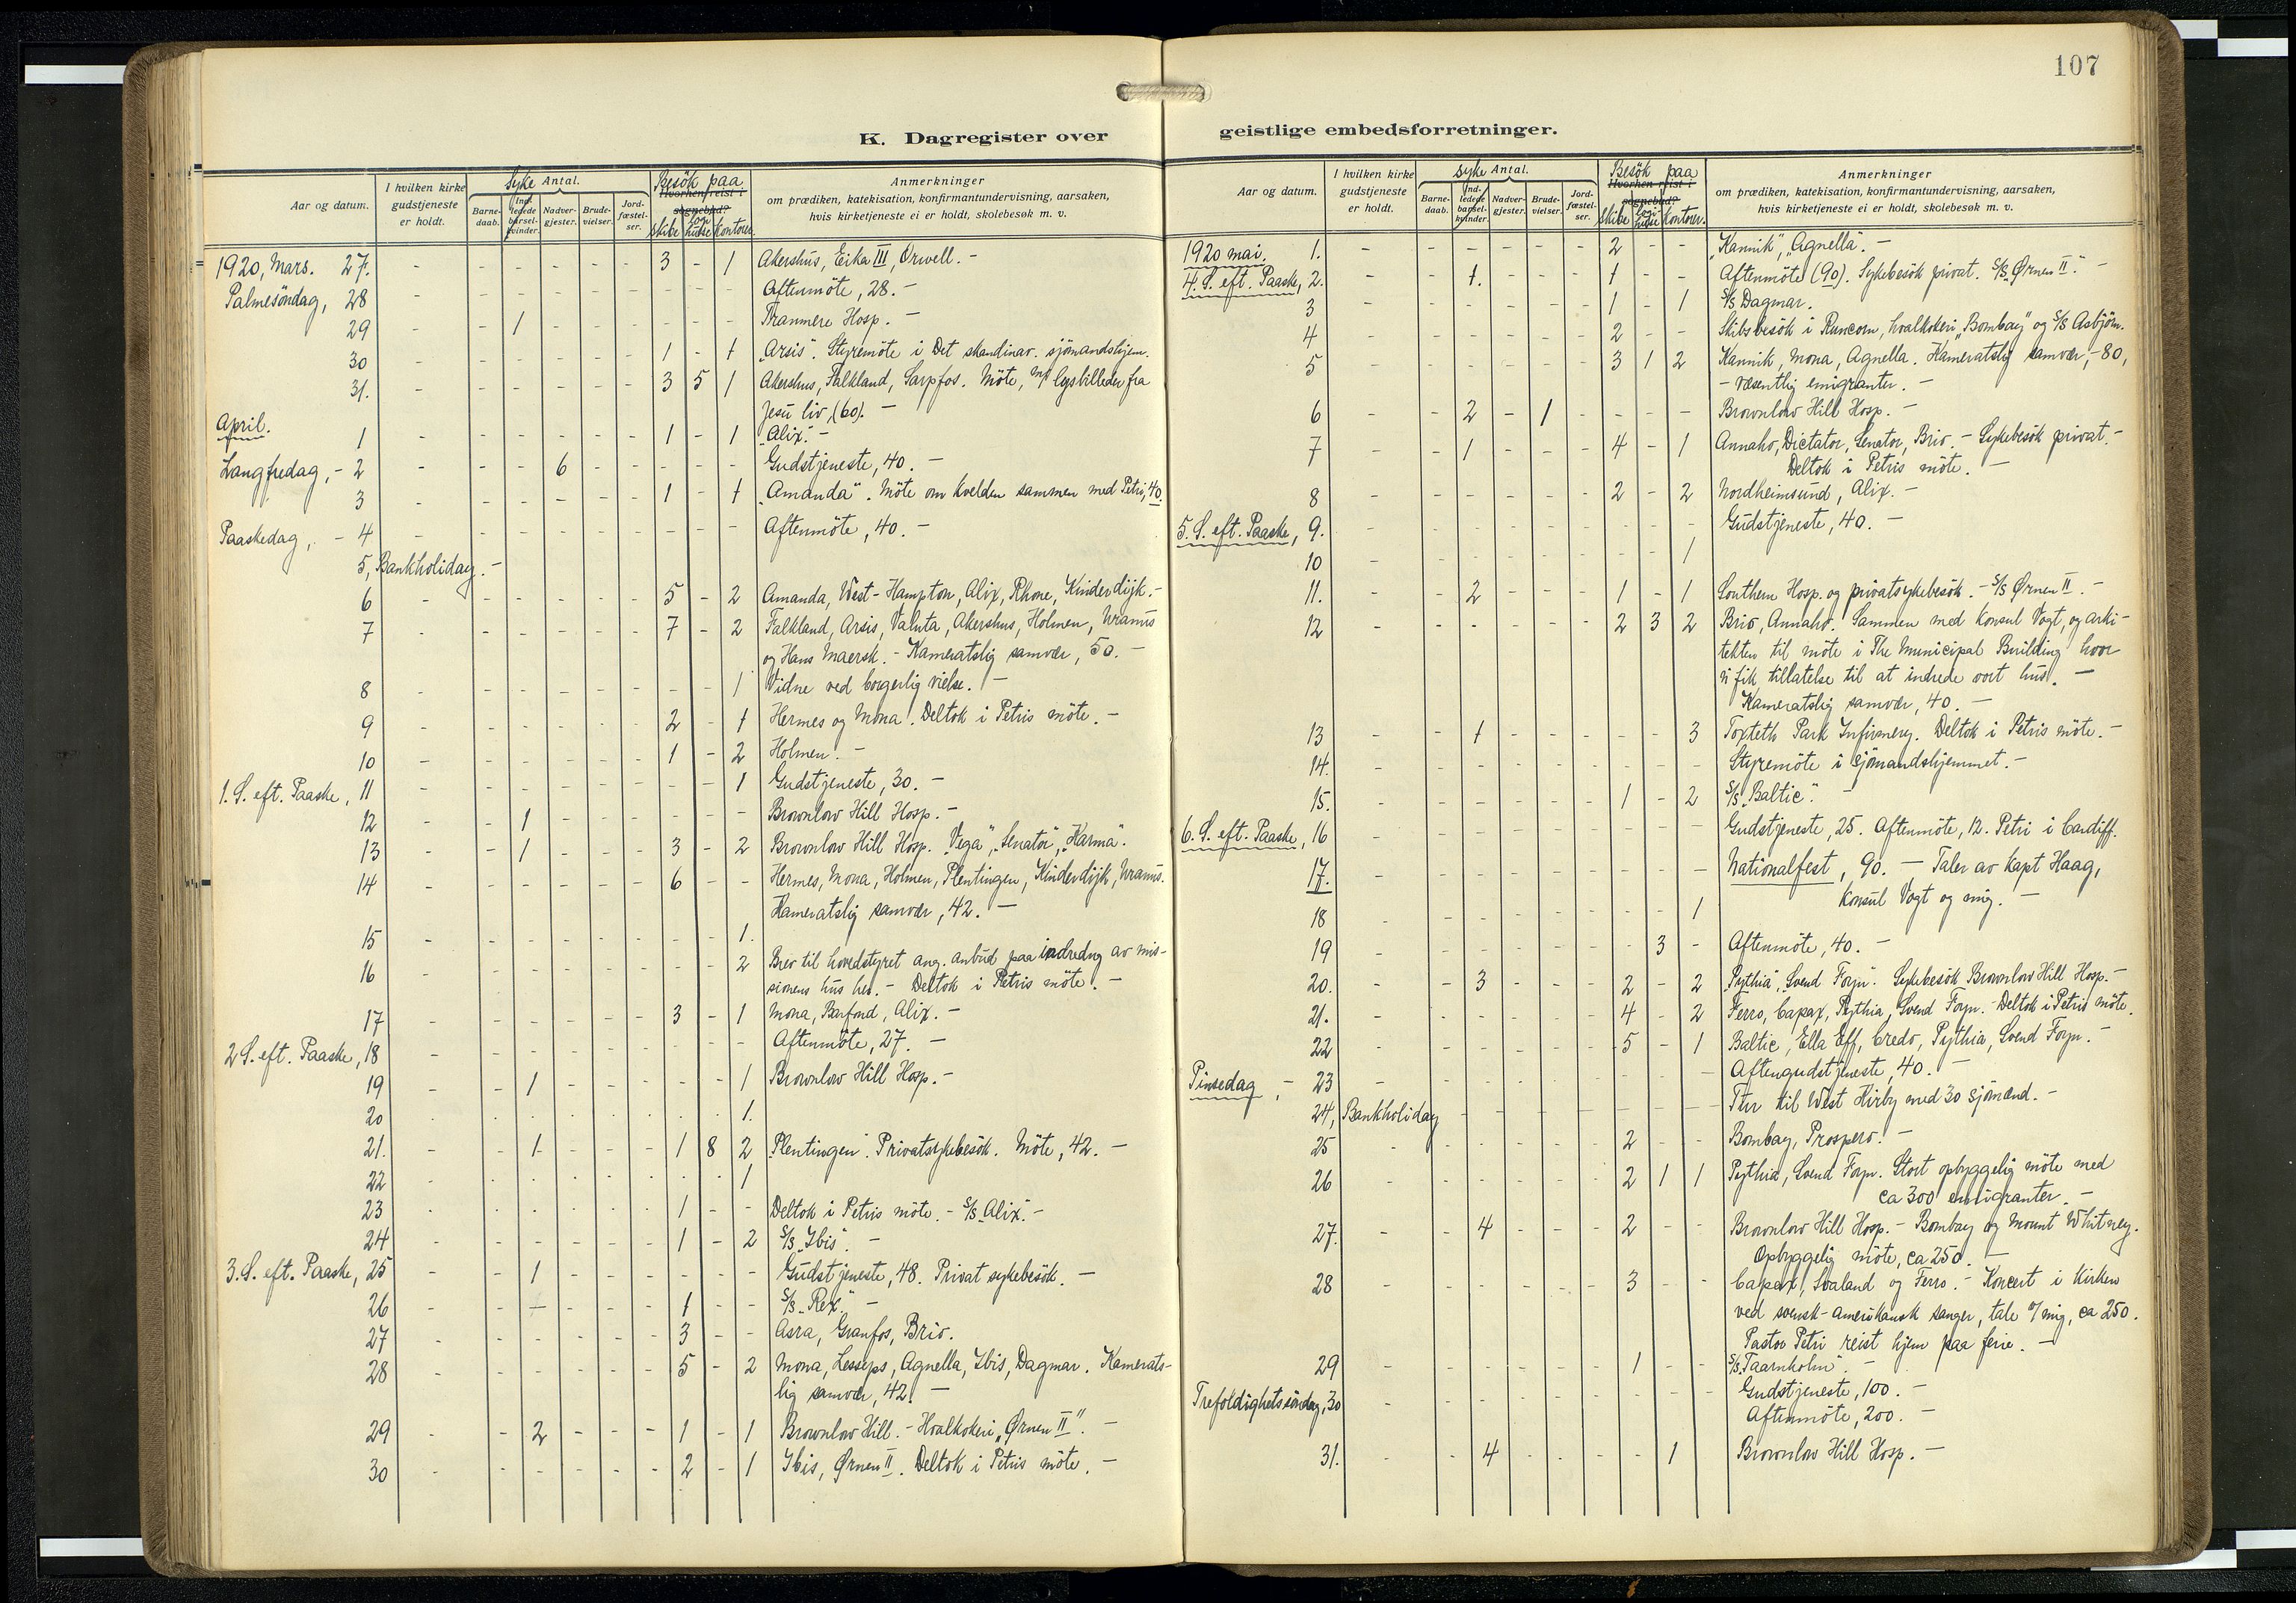 107
K. Dagregister over
Syke Antal.
Besök paa
Aar og datum.
I hvilken kirke gudstjeneste er holdt.
Barne-daab.
Ind-ledede barsel-kvinder.
Nadver-gjester.
Brude-vielser.
Jord-fæstel-ser.
Hvorhen reist i sognebud?
Skibe
Log. huse
Kontorer.
Anmerkninger
om prædiken, katekisation, konfirmantundervisning, aarsaken,
hvis kirketjeneste ei er holdt, skolebesøk m. v.
1920, Mars. 27. - - - - - - 3 - 1 Akershus, Eika III, Orwell. -
Palmesöndag, 28 - - - - - - - - - Aftenmöte, 28. -
29 - - 1 - - - - - - Tranmere Hosp. -
30 - - - - - - 1 - 1 "Arsis". Styremöte i Det skandinav. sjömandshjem.
31. - - - - - - 3 5 1 Akershus, Falkland, Sarpfos. Möte, m/ lysbilleder fra
Jesu liv, (60). -
April.
1 - - - - - - 1 - 1 "Alix". -
Langfredag, - 2 - - - 6 - - - - - Gudstjeneste, 40. -
3 - - - - - - 1 - 1 "Amanda". Möte om kvelden sammen med Petri, 40.
Paaskedag, - 4 - - - - - - - - - Aftenmöte, 40. -
5, Bankholiday. -
6 - - - - - - 5 - 2 Amanda, West-Hampton, Alix, Rhone, Kinderdijk. -
7 - - - - - - 7 - 2 Falkland, Arsis, Valuta, Akershus, Holmen, Uranus
og Hans Maersk. - Kameratslig samvær, 50. -
8 - - - - - - - - 1 Vidne ved borgerlig vielse. -
9 - - - - - - 2 - 1 Hermes og Mona. Deltok i Petris möte. -
10 - - - - - - 1 - 2 Holmen. -
1. S. eft. Paaske, 11 - - - - - - - - 1 Gudstjeneste, 30. -
12 - - 1 - - - - - - Brownlow Hill Hosp. -
13 - - 1 - - - 3 - 2 Brownlow Hill Hosp. "Vega", "Senator", "Karma".
14 - - - - - - 6 - - Hermes, Mona, Holmen, Plentingen, Kinderdijk, Uranus.
Kameratslig samvær, 42. -
15 - - - - - - - - 1.
16 - - - - - - - - 2 Brev til hovedstyret ang. anbud paa indredng av mis-
sionens hus her. - Deltok i Petris möte. -
17 - - - - - - 3 - 1 Mona, Barfond, Alix. -
2 S. eft. Paaske, 18 - - - - - - - - - Aftenmöte, 27. -
19 - - 1 - - - - - 1 Brownlow Hill Hosp. -
20 - - - - - - - - 1.
21. - - 1 - - - 1 8 2 Plentingen. Privatsykebesök. Möte, 42. -
22 - - - - - - - - 1
23 - - - - - - 1 - - Deltok i Petris möte. - S/S "Alix". -
24 - - - - - - 1 - 2 S/S "Ibis". -
3. S. eft. Paaske, 25 - - 1 - - - - - - Gudstjeneste, 48. Privat sykebesök. -
26 - - - - - - 1 - - S/S "Rex". -
27 - - - - - - 3 - - Asra, Granfos, Brio.
28 - - - - - - 5 - 2 Mona, Lesseps, Agnella, Ibis, Dagmar. Kamerats-
lig samvær, 42. -
29 - - 2 - - - 1 - 1 Brownlow Hill. - Hvalkokeri "Ørnen II". -
30 - - - - - - 2 - 1 Ibis, Ørnen II. Deltok i Petris möte. -
geistlige embedsforretninger.
Syke Antal.
Besök paa
Aar og datum.
I hvilken kirke gudstjeneste er holdt.
Barne-daab.
Ind-ledede barsel-kvinder.
Nadver-gjester.
Brude-vielser.
Jord-fæstel-ser.
Hvorhen reist i sognebud?
Skibe
Log. huse
Kontorer.
Anmerkninger
om prædiken, katekisation, konfirmantundervisning, aarsaken,
hvis kirketjeneste ei er holdt, skolebesøk m. v.
1920 mai. 1. - - - - - - 2 - - "Kannik", "Agnella". -
4. S. eft. Paaske, 2. - - 1. - - - 1 - - Aftenmöte (90). Sykebesök privat. S/S "Ørnen II". -
3 - - - - - - 1 - 1 S/S Dagmar.
4 - - - - - - 2 - - Skibsbesök i Runcorn, hvalkokeri "Bombay" og S/S Asbjörn.
5 - - - - - - 3 1 2 Kannik, Mona, Agnella. Kameratslig samvær, - 80,
- væsentlig emigranter. -
6 - - 2 - 1 - - - - Brownlow Hill Hosp. -
7 - - 1 - - - 4 - 1 Annaho, Dictator, Senator, Brio. - Sykebesök privat. -
Deltok i Petris möte. -
8 - - - - - - 2 - 2 Nordheimsund, Alix. -
5. S. eft. Paaske, 9. - - - - - - - - - Gudstjeneste, 40. -
10 - - - - - - - - 1
11. - - 2 - - - 1 - 1 Southern Hosp. og privatsykebesök. - S/S Ørnen II. -
12 - - - - - - 2 3 2 Brio, Annaho. Sammen med Konsul Vogt, og arki-
tekten til möte i The Municipal Building hvor
vi fik tillatelse til at indrede vort hus. -
Kameratslig samvær, 40. -
13 - - 1 - - - - - 3 Toxteth Park Infirmery. Deltok i Petris möte. -
14. - - - - - - - - - Styremöte i sjömandshjemmet. -
15. - - - - - - 1 - 2 S/S "Baltic". -
6. S. eft. Paaske, 16 - - - - - - - - - Gudstjeneste, 25. Aftenmöte, 12. Petri i Cardiff.
17. - - - - - - - - - Nationalfest, 90. - Taler av Kapt Haag,
Konsul Vogt og mig. -
18 - - - - - - - - 1
19 - - - - - - - 3 - Aftenmöte, 40. -
20. - - 3 - - - 2 - 2 "Pythia", "Svend Foyn". Sykebesök Brownlow Hill Hosp. -
21. - - - - - - 4 - 2 Ferro, Capax, Pythia, Svend Foyn. - Deltok i Petris möte.
22 - - - - - - 5 - 1 Baltic, Ella Eff, Credo, Pythia, Svend Foyn. -
Pinsedag, - 23 - - - - - - - - - Aftengudstjeneste, 40. -
24, Bankholiday - - - - - - - - Tur til West Kirby med 30 sjömænd. -
25 - - - - - - 2 - - Bombay, Prospero. -
26 - - - - - - 2 1 1 Pythia, Svend Foyn. Stort opbyggelig möte med
ca 300 emigranter. -
27. - - 4 - - - 2 - - Brownlow Hill Hosp. - Bombay og Mount Whitney.
Opbyggelig möte, ca 250. -
28 - - - - - - 3 - - Capax, Svaland og Ferro. - Koncert i Kirken
ved svensk-amerikansk sanger, tale v/ mig, ca 250.
Pastor Petri reist hjem paa ferie. -
29 - - - - - - 1 - - S/S "Taarnholm". -
Trefoldighetssöndag, 30 - - - - - - - - - Gudstjeneste, 100. -
Aftenmöte, 200. -
31. - - 4 - - - - 1 Brownlow Hill Hosp. -